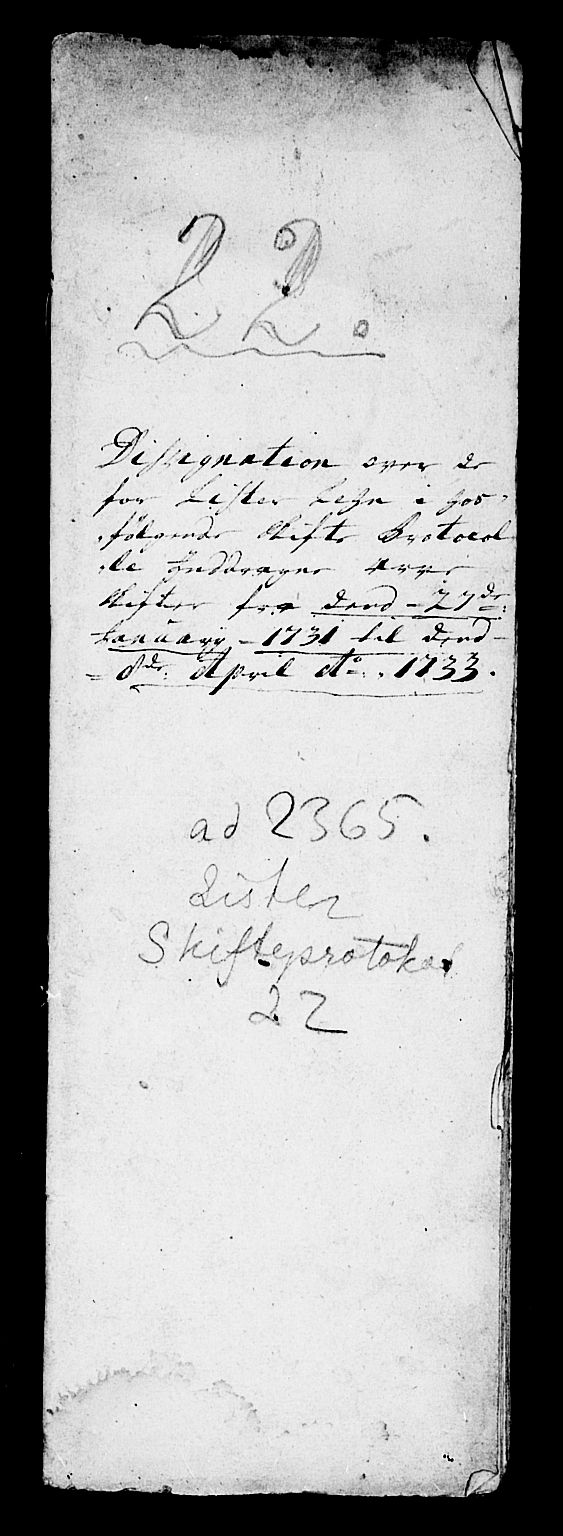 22.
Dissignation over de
for Lister Lehn i hos-
følgende Skifte Protocol
le Inddragne Arve
Skifter fra dend - 27de
January - 1731 til dend -
- 8de April Ao. 1733.
ad 2365.
Lister
Skifteprotokol
22